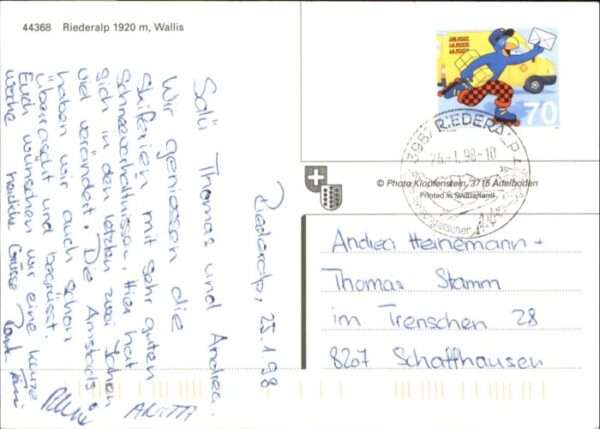 44368 Riederalp 1920 m, Wallis
Riederalp, 25.1.98
Salü Thomas und Andrea.
Wir geniessen die
Skiferien mit sehr guten
Schneeverhältnissen. Hier hat
sich in den letzten zwei Jahren
viel verändert. Die Arnstads
haben wir auch schon
überrascht und begrüsst.
Euch wünschen wir eine kurze
Woche herzliche Grüsse
ANITA
70
3987 RIEDERALP
-1.98-10
© Photo Klopfenstein, 3715 Adelboden
Printed in Switzerland
Andrea Heinemann +
Thomas Stamm
im Trenschen 28
8207 Schaffhausen